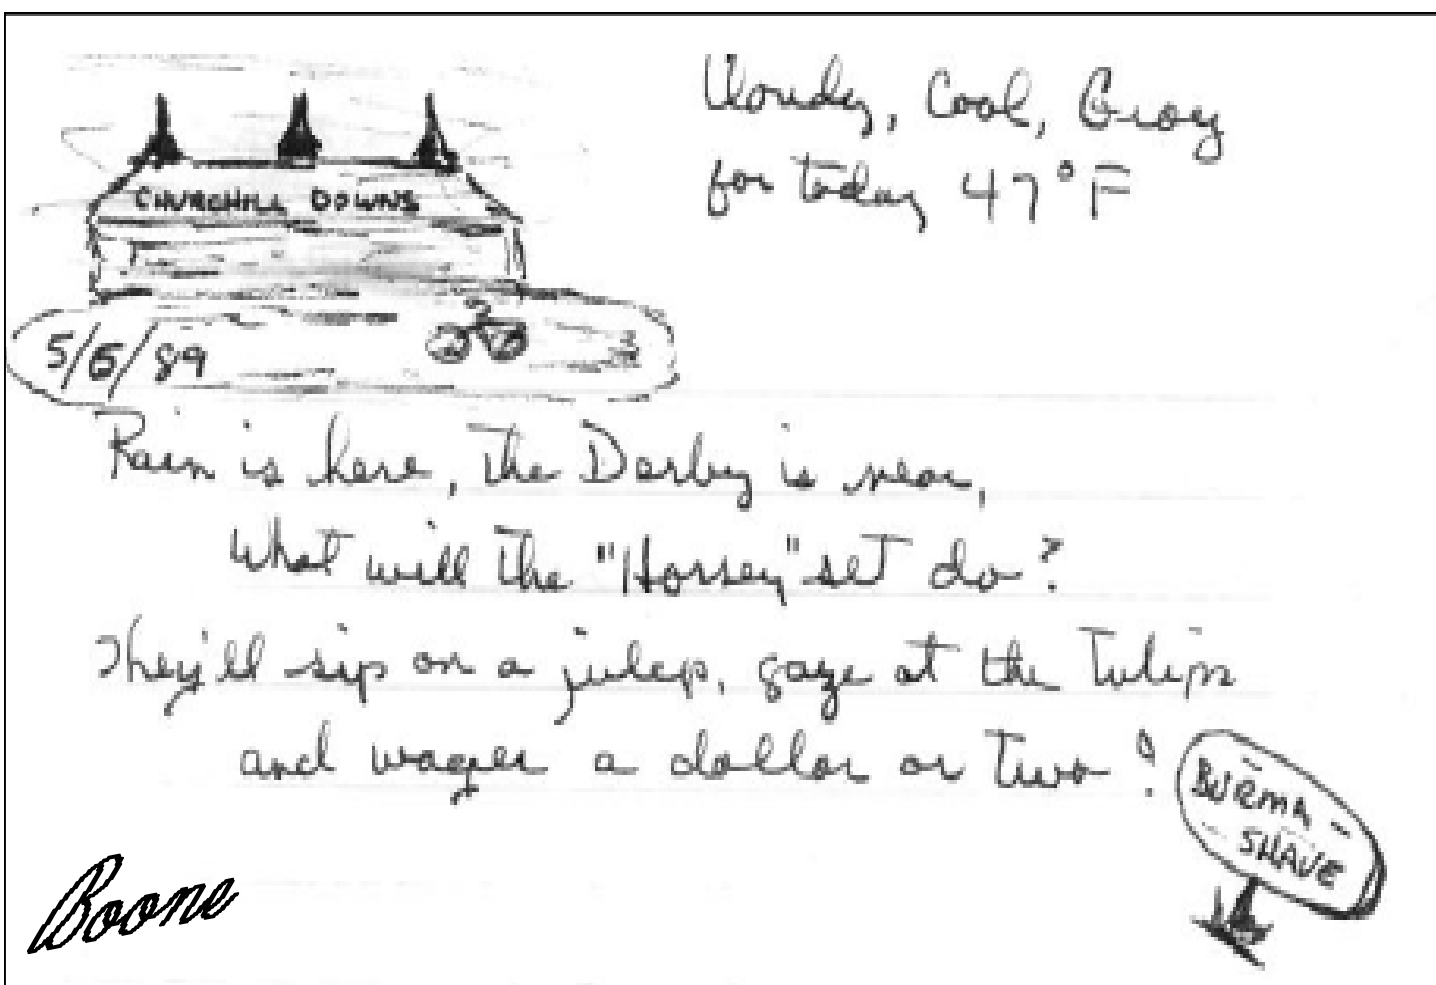 Cloudy, Cool, Gray
for today 47°F
CHURCHILL DOWNS
5/6/89
Rain is here, the Derby is near,
What will the "Horsey" set do?
They'll sip on a julep, gaze at the tulips
and wager a dollar or two!
BURMA -
- SHAVE
Boone